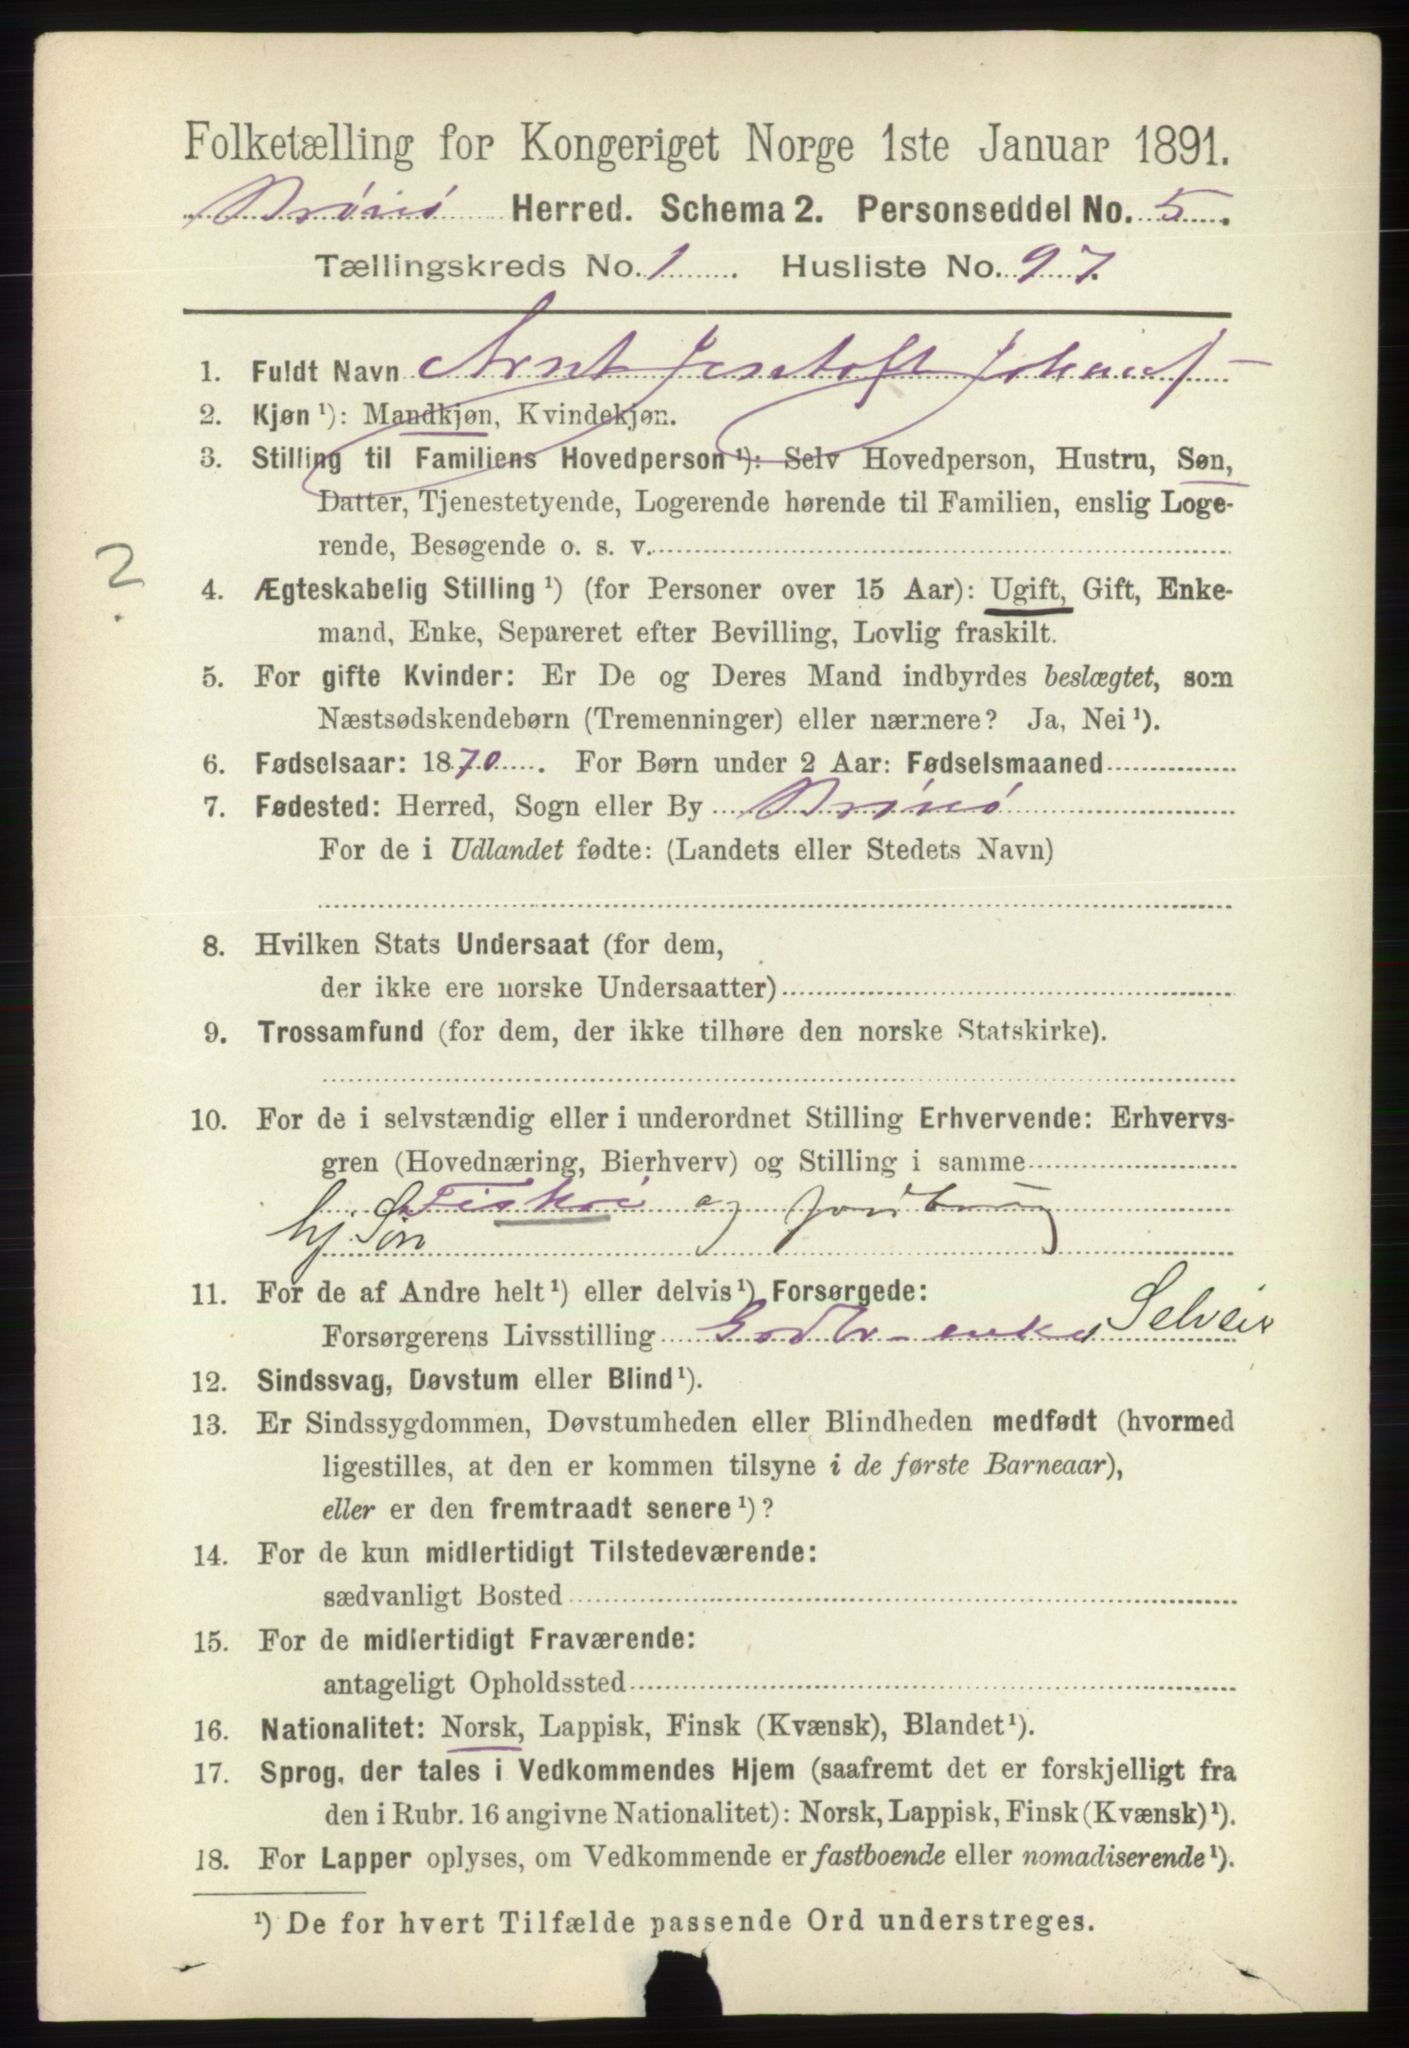 Folketælling for Kongeriget Norge 1ste Januar 1891.
Brönö Herred. Schema 2. Personseddel No. 5.
Tællingskreds No. 1. Husliste No. 97.
1. Fuldt Navn Arnt Jentoft Johans
2. Kjøn ¹): Mandkjøn, Kvindekjøn.
3. Stilling til Familiens Hovedperson ¹): Selv Hovedperson, Hustru, Søn,
Datter, Tjenestetyende, Logerende hørende til Familien, enslig Loge-
rende, Besøgende o. s. v.
2
4. Ægteskabelig Stilling ¹) (for Personer over 15 Aar): Ugift, Gift, Enke-
mand, Enke, Separeret efter Bevilling, Lovlig fraskilt.
5. For gifte Kvinder: Er De og Deres Mand indbyrdes beslægtet, som
Næstsødskendebørn (Tremenninger) eller nærmere? Ja, Nei ¹).
6. Fødselsaar: 1870. For Børn under 2 Aar: Fødselsmaaned
7. Fødested: Herred, Sogn eller By Brönö
For de i Udlandet fødte: (Landets eller Stedets Navn)
8. Hvilken Stats Undersaat (for dem,
der ikke ere norske Undersaatter)
9. Trossamfund (for dem, der ikke tilhøre den norske Statskirke).
10. For de i selvstændig eller i underordnet Stilling Erhvervende: Erhvervs-
gren (Hovednæring, Bierhverv) og Stilling i samme
Fiskeri og jordbrug
hj Søn
11. For de af Andre helt ¹) eller delvis ¹) Forsørgede:
Forsørgerens Livsstilling Gaardbr enke Selveier
12. Sindssvag, Døvstum eller Blind ¹).
13. Er Sindssygdommen, Døvstumheden eller Blindheden medfødt (hvormed
ligestilles, at den er kommen tilsyne i de første Barneaar),
eller er den fremtraadt senere ¹)?
14. For de kun midlertidigt Tilstedeværende:
sædvanligt Bosted
15. For de midlertidigt Fraværende:
antageligt Opholdssted
16. Nationalitet: Norsk, Lappisk, Finsk (Kvænsk), Blandet ¹).
17. Sprog, der tales i Vedkommendes Hjem (saafremt det er forskjelligt fra
den i Rubr. 16 angivne Nationalitet): Norsk, Lappisk, Finsk (Kvænsk) ¹).
18. For Lapper oplyses, om Vedkommende er fastboende eller nomadiserende ¹).
¹) De for hvert Tilfælde passende Ord understreges.